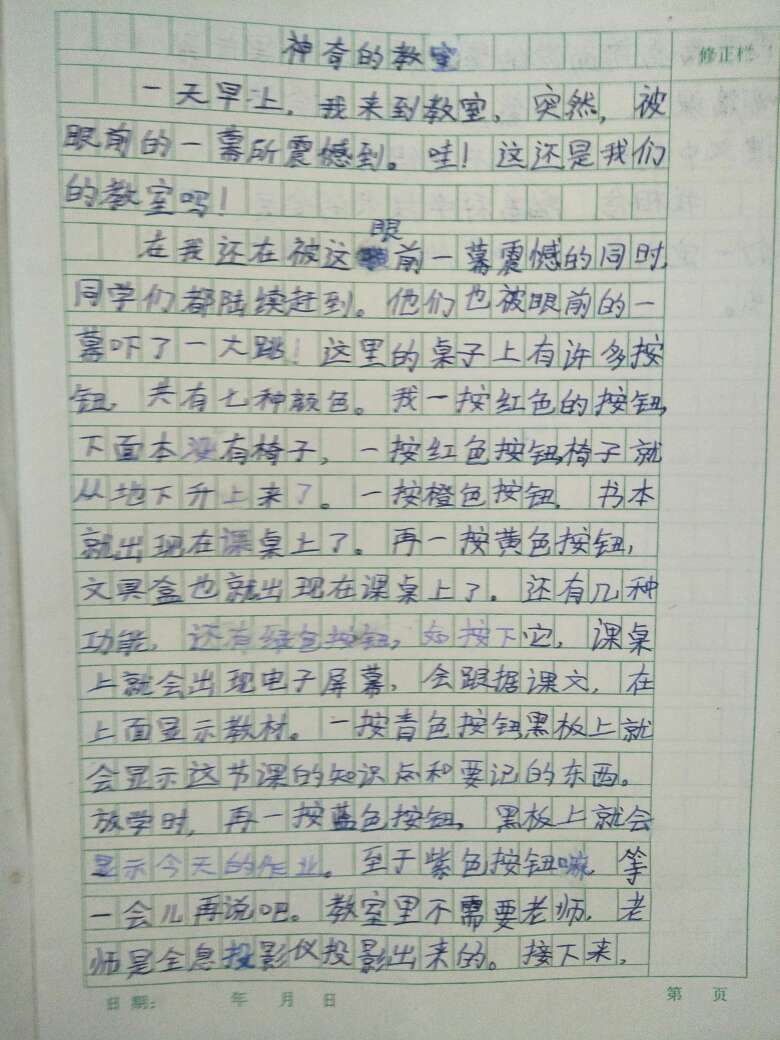 神奇的教室
修正栏
一天早上,我来到教室,突然,被
眼前的一幕所震憾到。哇!这还是我们
的教室吗!
眼
在我还在被这前一幕震憾的同时,
同学们都陆续赶到。他们也被眼前的一
幕吓了一大跳!这里的桌子上有许多按
钮,共有七种颜色。我一按红色的按钮,
下面本没有椅子,一按红色按钮,椅子就
从地下升上来了。一按橙色按钮,书本
就出现在课桌上了。再一按黄色按钮,
文具盒也就出现在课桌上了。还有几种
功能,还有绿色按钮,如按下它,课桌
上就会出现电子屏幕,会跟据课文,在
上面显示教材。一按青色按钮黑板上就
会显示这节课的知识点和要记的东西。
放学时,再一按蓝色按钮,黑板上就会
显示今天的作业。至于紫色按钮嘛,等
一会儿再说吧。教室里不需要老师,老
师是全息投影仪投影出来的。接下来,
日期: 年 月 日
第 页